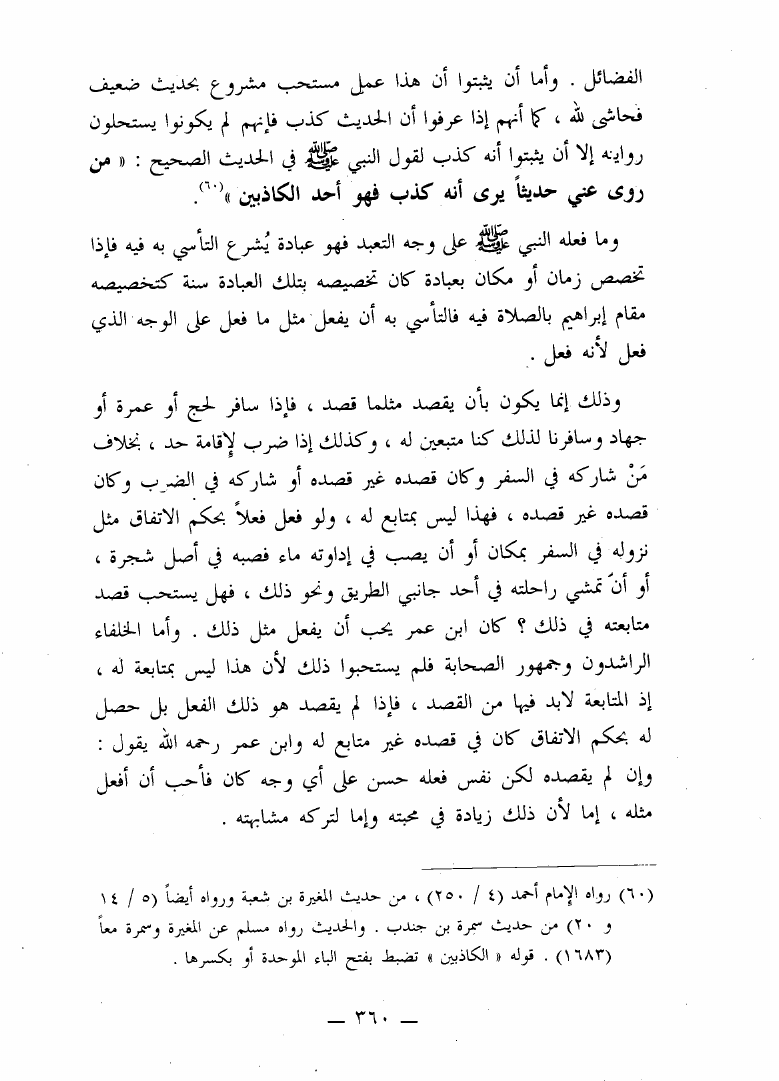 الفضائل . وأما أن يثبتوا أن هذا عمل مستحب مشروع بحديث ضعيف
فحاشى لله ، كما أنهم إذا عرفوا أن الحديث كذب فإنهم لم يكونوا يستحلون
روايته إلا أن يثبتوا أنه كذب لقول النبي ﷺ في الحديث الصحيح : « من
روى عني حديثاً يرى أنه كذب فهو أحد الكاذبين »(٦٠).
وما فعله النبي ﷺ على وجه التعبد فهو عبادة يُشرع التأسي به فيه فإذا
تخصص زمان أو مكان بعبادة كان تخصيصه بتلك العبادة سنة كتخصيصه
مقام إبراهيم بالصلاة فيه فالتأسي به أن يفعل مثل ما فعل على الوجه الذي
فعل لأنه فعل .
وذلك إنما يكون بأن يقصد مثلما قصد ، فإذا سافر لحج أو عمرة أو
جهاد وسافرنا لذلك كنا متبعين له ، وكذلك إذا ضرب لإقامة حد ، بخلاف
مَنْ شاركه في السفر وكان قصده غير قصده أو شاركه في الضرب وكان
قصده غير قصده ، فهذا ليس بمتابع له ، ولو فعل فعلاً بحكم الاتفاق مثل
نزوله في السفر بمكان أو أن يصب في إداوته ماء فصبه في أصل شجرة ،
أو أن تمشي راحلته في أحد جانبي الطريق ونحو ذلك ، فهل يستحب قصد
متابعته في ذلك ؟ كان ابن عمر يحب أن يفعل مثل ذلك . وأما الخلفاء
الراشدون وجمهور الصحابة فلم يستحبوا ذلك لأن هذا ليس بمتابعة له ،
إذ المتابعة لابد فيها من القصد ، فإذا لم يقصد هو ذلك الفعل بل حصل
له بحكم الاتفاق كان في قصده غير متابع له وابن عمر رحمه الله يقول :
وإن لم يقصده لكن نفس فعله حسن على أي وجه كان فأحب أن أفعل
مثله ، إما لأن ذلك زيادة في محبته وإما لتركه مشابهته .
(٦٠) رواه الإمام أحمد (٤ / ٢٥٠) ، من حديث المغيرة بن شعبة ورواه أيضاً (٥ / ١٤
و ٢٠) من حديث سمرة بن جندب . والحديث رواه مسلم عن المغيرة وسمرة معاً
(١٦٨٣) . قوله « الكاذبين » تضبط بفتح الباء الموحدة أو بكسرها .
— ٣٦٠ —